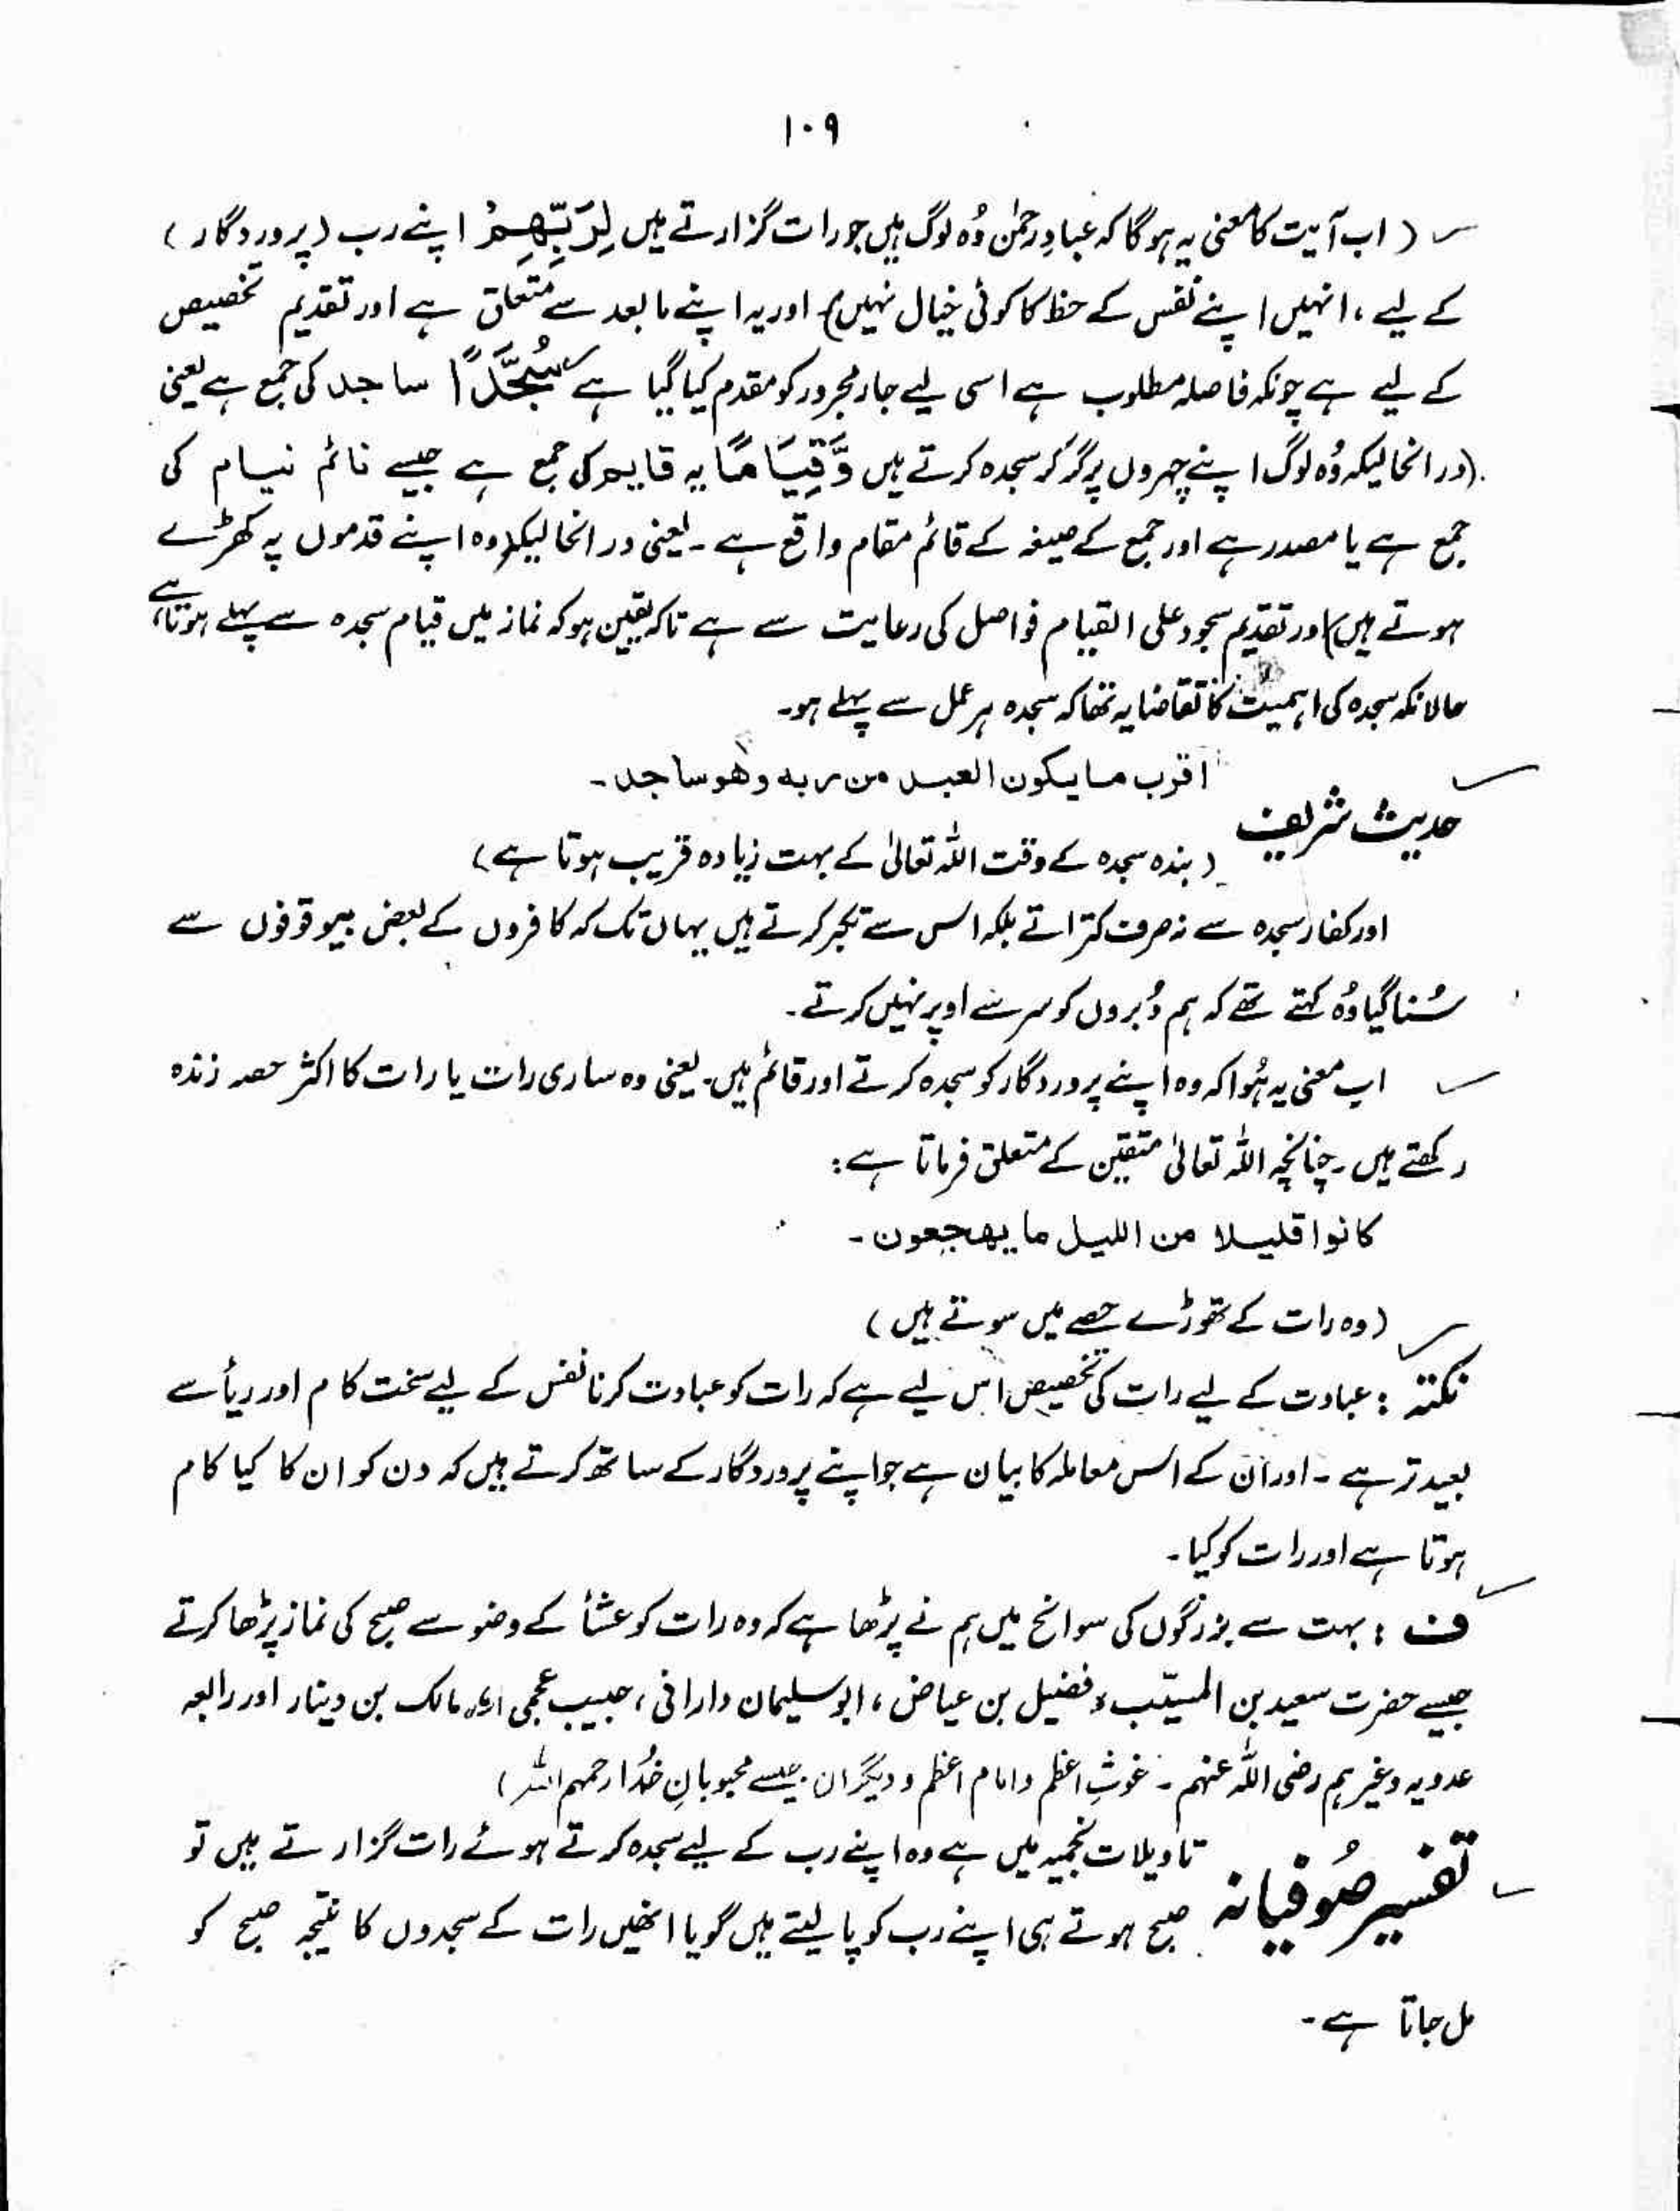 ۱۰۹
( اب آیت کا معنی یہ ہوگا کہ عبادِ رحمٰن وُہ لوگ ہیں جو رات گزارتے ہیں لِرَبِّهِمْ اپنے رب (پروردگار)
کے لیے، انہیں اپنے نفس کے حظ کا کوئی خیال نہیں) اور یہ اپنے ما بعد سے متعلق ہے اور تقدیم تخصیص
کے لیے ہے چونکہ فاصلہ مطلوب ہے اسی لیے جار مجرور کو مقدم کیا گیا ہے سُجَّدًا ساجد کی جمع ہے یعنی
(درانحالیکہ وُہ لوگ اپنے چہروں پر گر کر سجدہ کرتے ہیں وَّقِیَامًا یہ قایم کی جمع ہے جیسے نائم نیام کی
جمع ہے یا مصدر ہے اور جمع کے صیغہ کے قائم مقام واقع ہے ۔ یعنی درانحالیکہ وہ اپنے قدموں پہ کھڑے
ہوتے ہیں) اور تقدیم سجود علی القیام فواصل کی رعایت سے ہے تاکہ یقین ہو کہ نماز میں قیام سجدہ سے پہلے ہوتا ہے،
حالانکہ سجدہ کی اہمیت کا تقاضا یہ تھا کہ سجدہ ہر عمل سے پہلے ہو۔
اقرب ما یکون العبد من ربه وھو ساجد ۔
حدیث شریف
( بندہ سجدہ کے وقت اللہ تعالیٰ کے بہت زیادہ قریب ہوتا ہے)
اور کفار سجدہ سے نہ صرف کتراتے بلکہ اس سے تکبر کرتے ہیں یہاں تک کہ کافروں کے بعض بیوقوفوں سے
سُنا گیا وُہ کہتے تھے کہ ہم دُبروں کو سر سے اوپر نہیں کرتے ۔
اب معنی یہ ہُوا کہ وہ اپنے پروردگار کو سجدہ کرتے اور قائم ہیں۔ یعنی وہ ساری رات یا رات کا اکثر حصہ زندہ
رکھتے ہیں ۔ چنانچہ اللہ تعالیٰ متقین کے متعلق فرماتا ہے :
کانوا قلیلا من اللیل ما یھجعون ۔
(وہ رات کے تھوڑے حصے میں سوتے ہیں)
نکتہ : عبادت کے لیے رات کی تخصیص اس لیے ہے کہ رات کو عبادت کرنا نفس کے لیے سخت کام اور ریأ سے
بعید تر ہے ۔ اور ان کے اس معاملہ کا بیان ہے جو اپنے پروردگار کے ساتھ کرتے ہیں کہ دن کو ان کا کیا کام
ہوتا ہے اور رات کو کیا ۔
ف : بہت سے بزرگوں کی سوانح میں ہم نے پڑھا ہے کہ وہ رات کو عشأ کے وضو سے صبح کی نماز پڑھا کرتے
جیسے حضرت سعید بن المسیّب، فضیل بن عیاض، ابو سلیمان دارانی، حبیب عجمی اور مالک بن دینار اور رابعہ
عدویہ وغیرہم رضی اللہ عنہم ۔ غوثِ اعظم و امام اعظم و دیگران جیسے محبوبانِ خُدا رحمہم اللہ)
تاویلات نجمیہ میں ہے وہ اپنے رب کے لیے سجدہ کرتے ہوئے رات گزارتے ہیں تو
تفسیر صُوفیانہ
صبح ہوتے ہی اپنے رب کو پالیتے ہیں گویا انھیں رات کے سجدوں کا نتیجہ صبح کو
مل جاتا ہے ۔